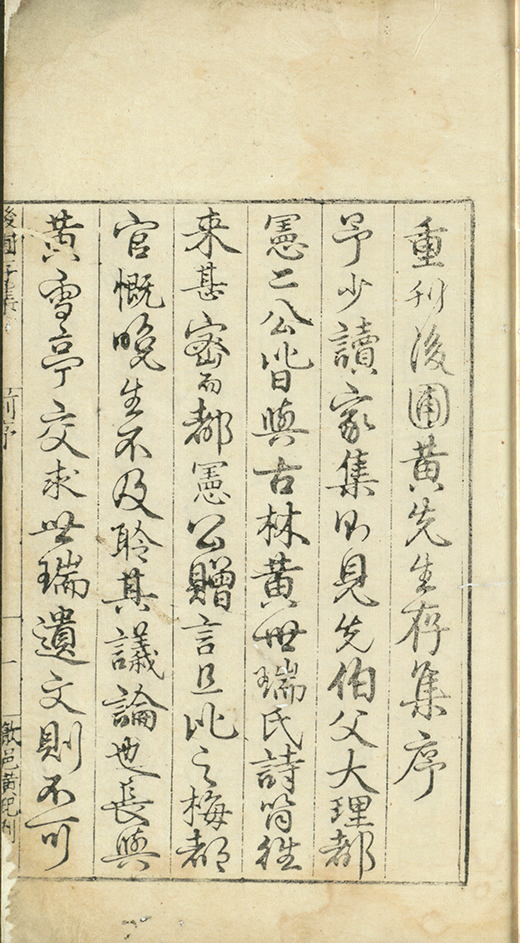 重刋後圃黄先生存集序
予少讀家集即見先伯父大理都
憲二公皆與古林黄世瑞氏詩筒徃
来甚密而都憲公贈言且比之梅都
官慨晚生不及聆其議論也長與
黄雪亭交求世瑞遺文則不可
後圃存集
前序
一
歙邑黄刋